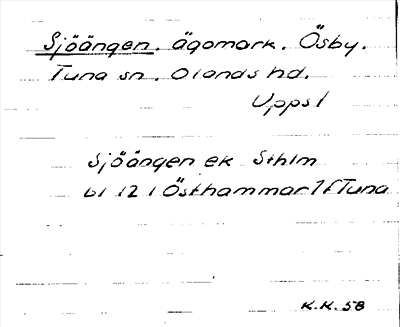 Sjöängen. ägomark. Ösby.
Tuna sn. Olands hd.
Uppsl
Sjöängen ek Sthlm
bl 121 Östhammar 1f Tuna
K.K. 58